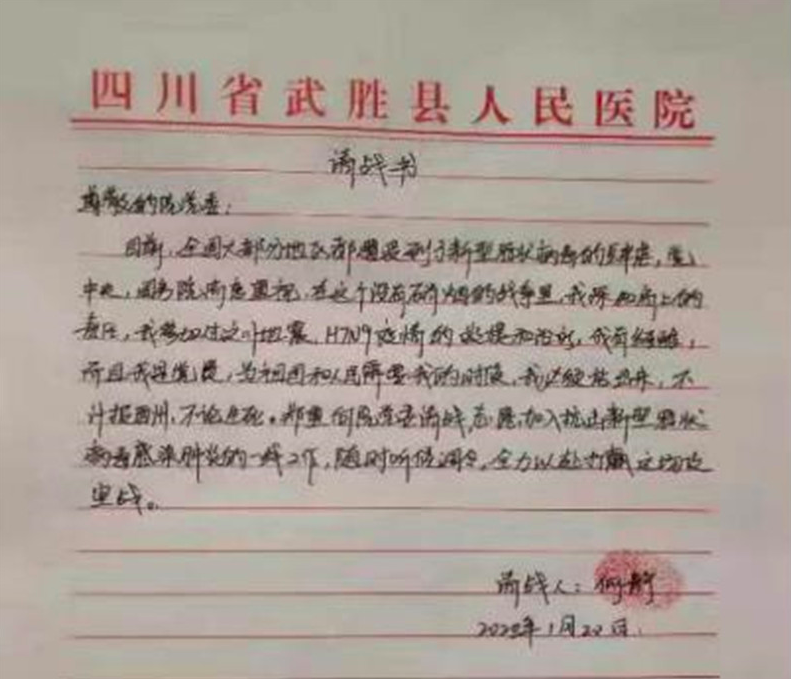 四川省武胜县人民医院
请战书
尊敬的院党委：
目前，全国大部分地区都遭受到了新型冠状病毒的肆虐，党
中央，国务院高度重视，在这个没有硝烟的战争里，我深知肩上的
责任，我参加过汶川地震、H7N9疫情的救援和治疗，我有经验，
而且我是党员，当祖国和人民需要我的时候，我必须站出来，不
计报酬，不论生死。郑重向院党委请战志愿加入抗击新型冠状
病毒感染肺炎的一线工作，随时听候调令，全力以赴打赢这场攻
坚战。
请战人：何静
1月20日